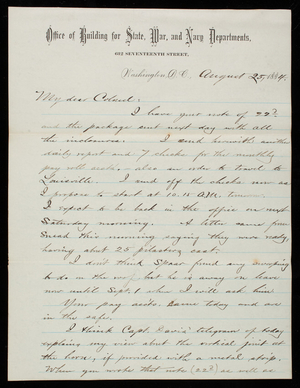 Office of Building for State, War, and Navy Departments,
612 SEVENTEENTH STREET,
Washington, D.C., August 25, 1884.
My dear Colonel:
I have your note of 22d
and the package sent next day with all
the inclosures. I send herewith another
daily report and 7 checks for the monthly
pay rolls; also an order to travel to
Louisville. I send off the checks now as
I propose to start at 10.10 A.M.
I expect to be back in the office on
Saturday morning. A letter came from
Snead this morning, saying they were ready,
having about 25 pilasters cast.
I don't think has any
to do in the , but he is away on leave
now until Sept. 1 when I will ask him
Your pay accts. came today and are
in the safe.
I think Capt. Davis' telegram of today
explains my view about the vertical joint at
the , if provided with a metal strip.
When you wrote that note (22d) as well as